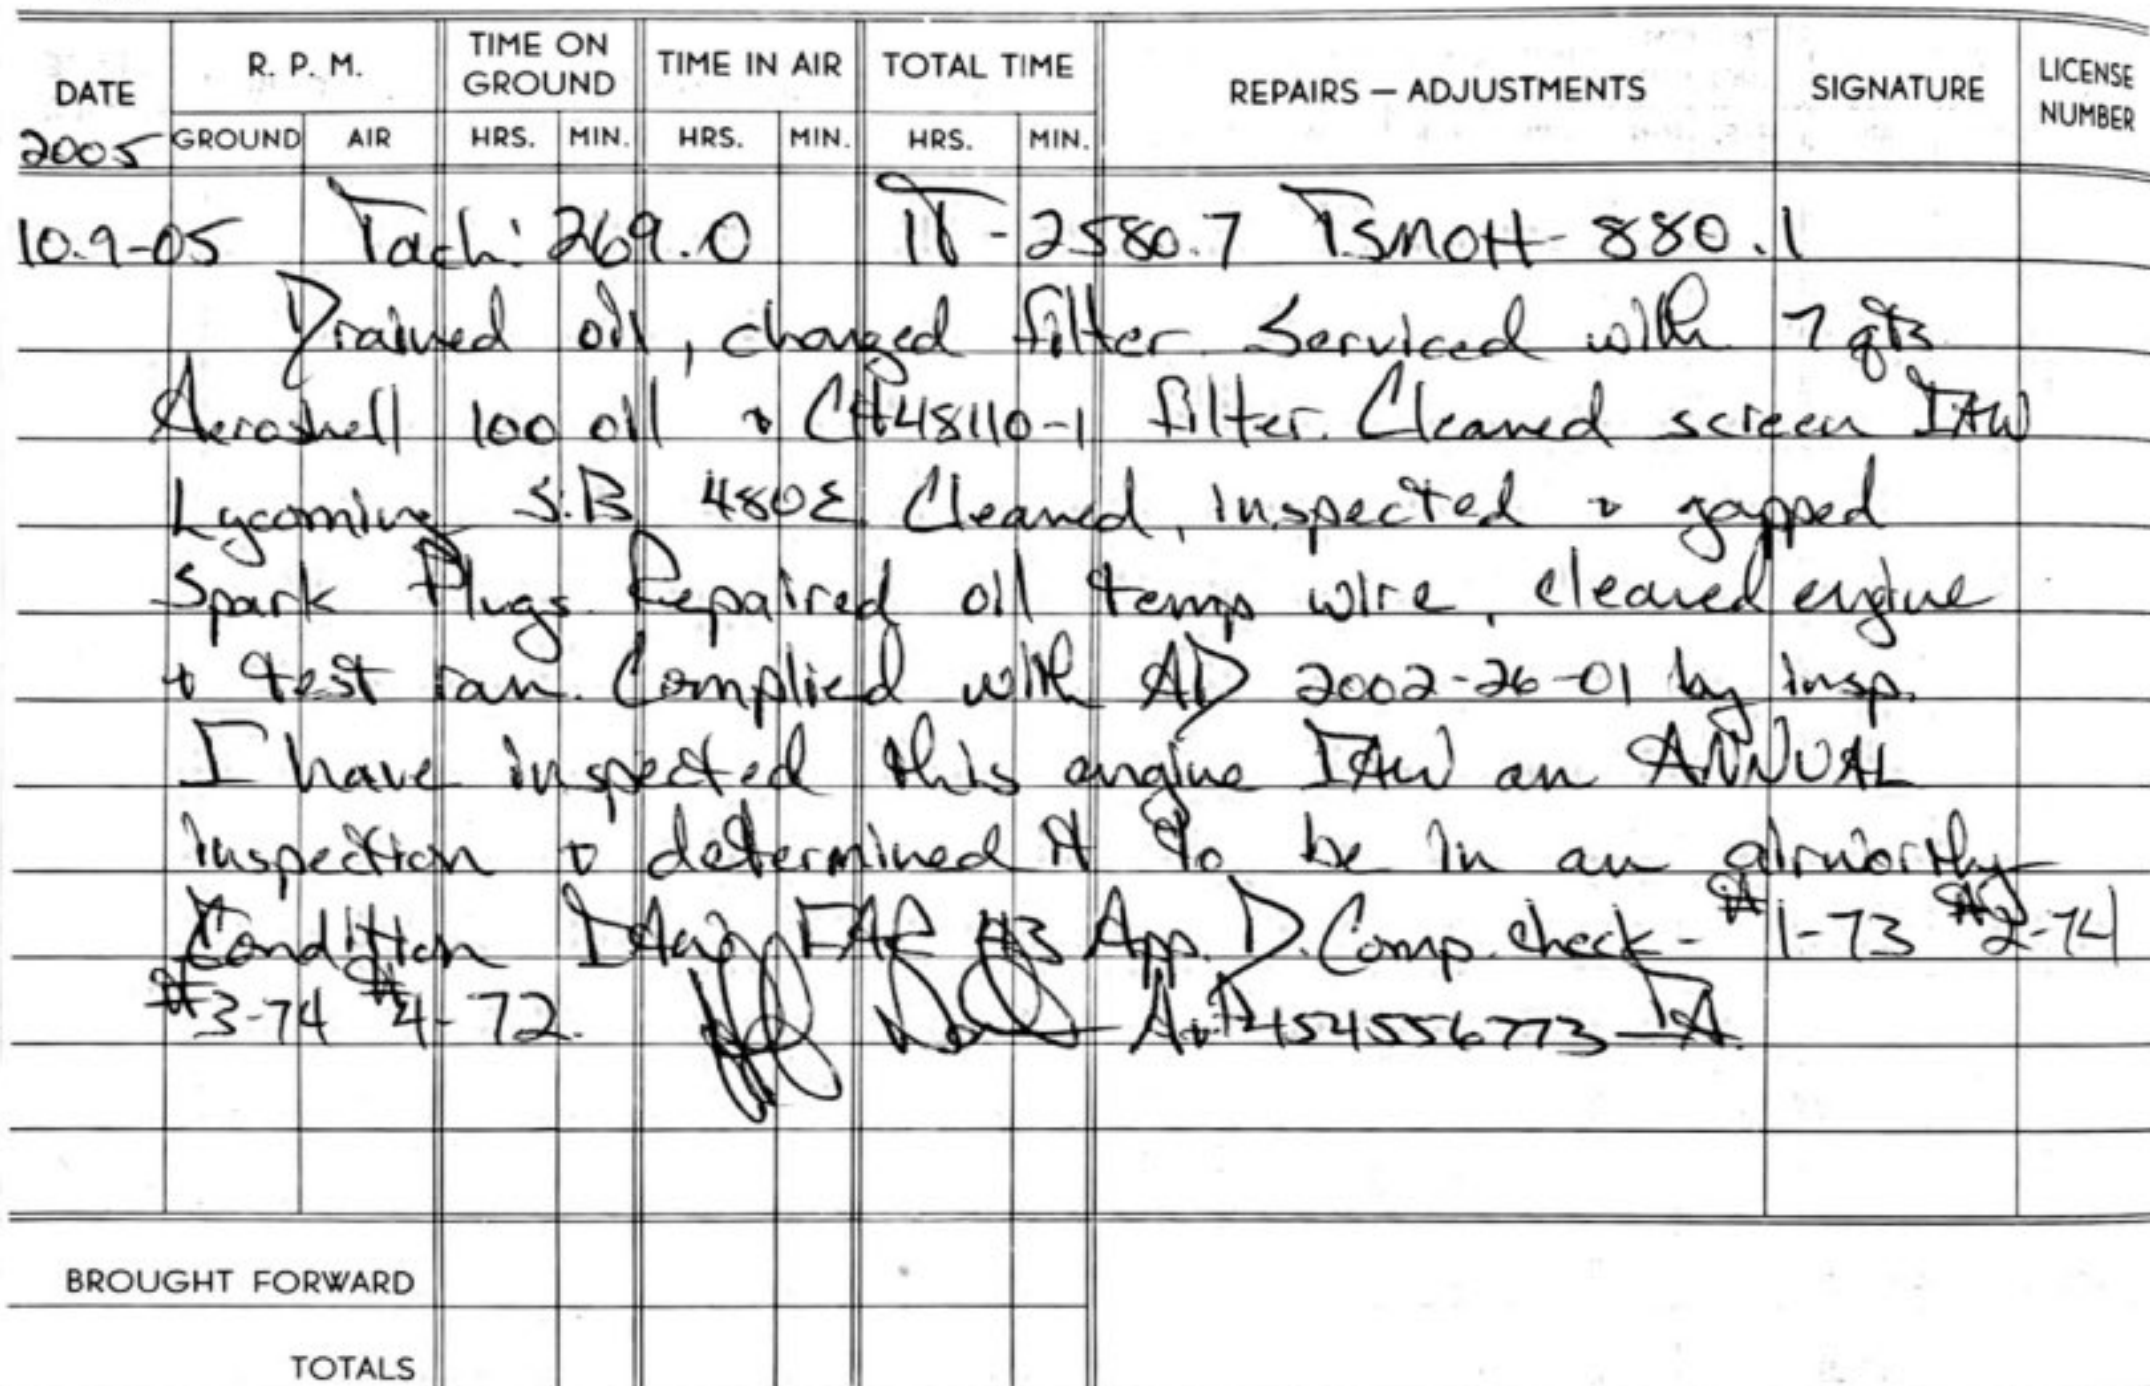 DATE R. P. M. TIME ON GROUND TIME IN AIR TOTAL TIME REPAIRS — ADJUSTMENTS SIGNATURE LICENSE NUMBER
2005 GROUND AIR HRS. MIN. HRS. MIN. HRS. MIN.
10-9-05 Tach: 269.0 TT-2580.7 TSMOH-880.1
Drained oil, changed filter. Serviced with 7 qts
Aeroshell 100 oil & CH48110-1 filter. Cleaned screen IAW
Lycoming S.B. 480E. Cleaned, inspected & gapped
Spark Plugs. Repaired oil temp wire, cleaned engine
& test ran. Complied with AD 2002-26-01 by insp.
I have inspected this engine IAW an ANNUAL
inspection & determined it to be in an airworthy
Condition IAW FAR 43 App. D. Comp. check - #1-73 #2-74
#3-74 #4-72. A&P454556773 IA.
BROUGHT FORWARD
TOTALS